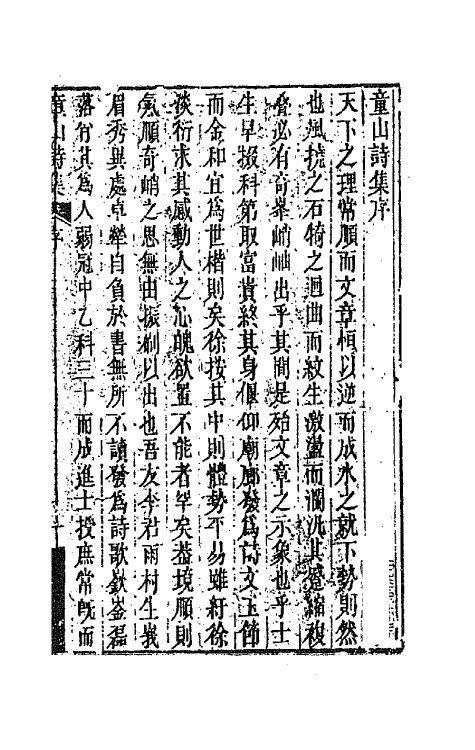 童山詩集序
天下之理常順而文章恒以逆而成水之就下勢則然
也風撓之石犄之迴曲而紋生激盪而瀾汎其蹙縮複
疊必有奇峯峭岫出乎其間是殆文章之示象也乎士
生早掇科第取富貴終其身偃仰廟廊發爲詩文玉節
而金和宜爲世楷則矣徐按其中則體勢平易雖紆徐
淡衍求其感動人之心魄欲置不能者罕矣葢境順則
氣順奇峭之思無由振刷以出也吾友李君雨村生峩
眉秀異處卓犖自負於書無所不讀發爲詩歌欽崟磊
落肖其爲人弱冠中乙科三十而成進士授庶常旣而
童山詩集 序